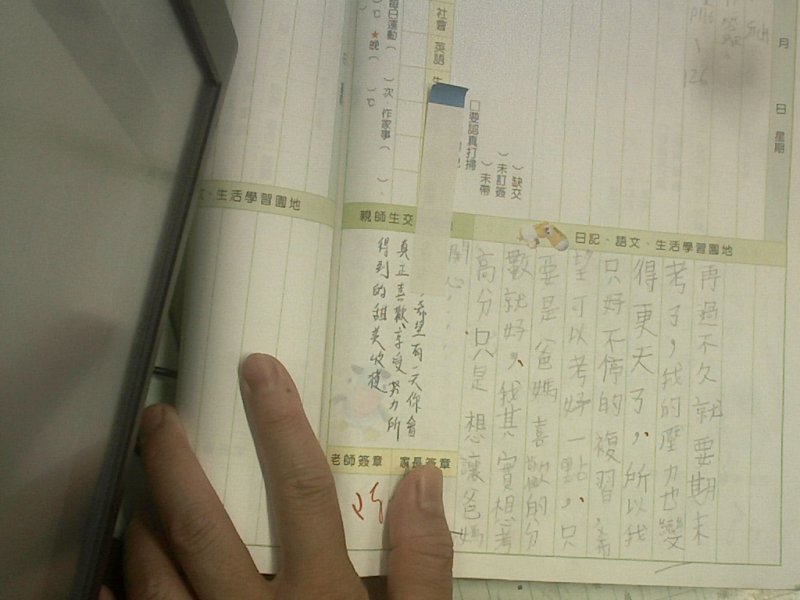 月　日　星期
日記、語文、生活學習園地
再過不久就要期末
考了，我的壓力也變
得更天了，所以我
只好不停的複習，希
望可以考好一點，只
要是爸媽喜歡的分
數就好，我其實想考
高分，只是想讓爸媽
開心，
）缺交
）未訂簽
）未帶
□要認真打掃
社會 英語
每日運動（
）次 作家事（ ）
℃ ★晚（ ）℃
親師生交
希望有一天你會
真正喜歡、享受努力所
得到的甜美收穫
老師簽章 家長簽章
文、生活學習園地